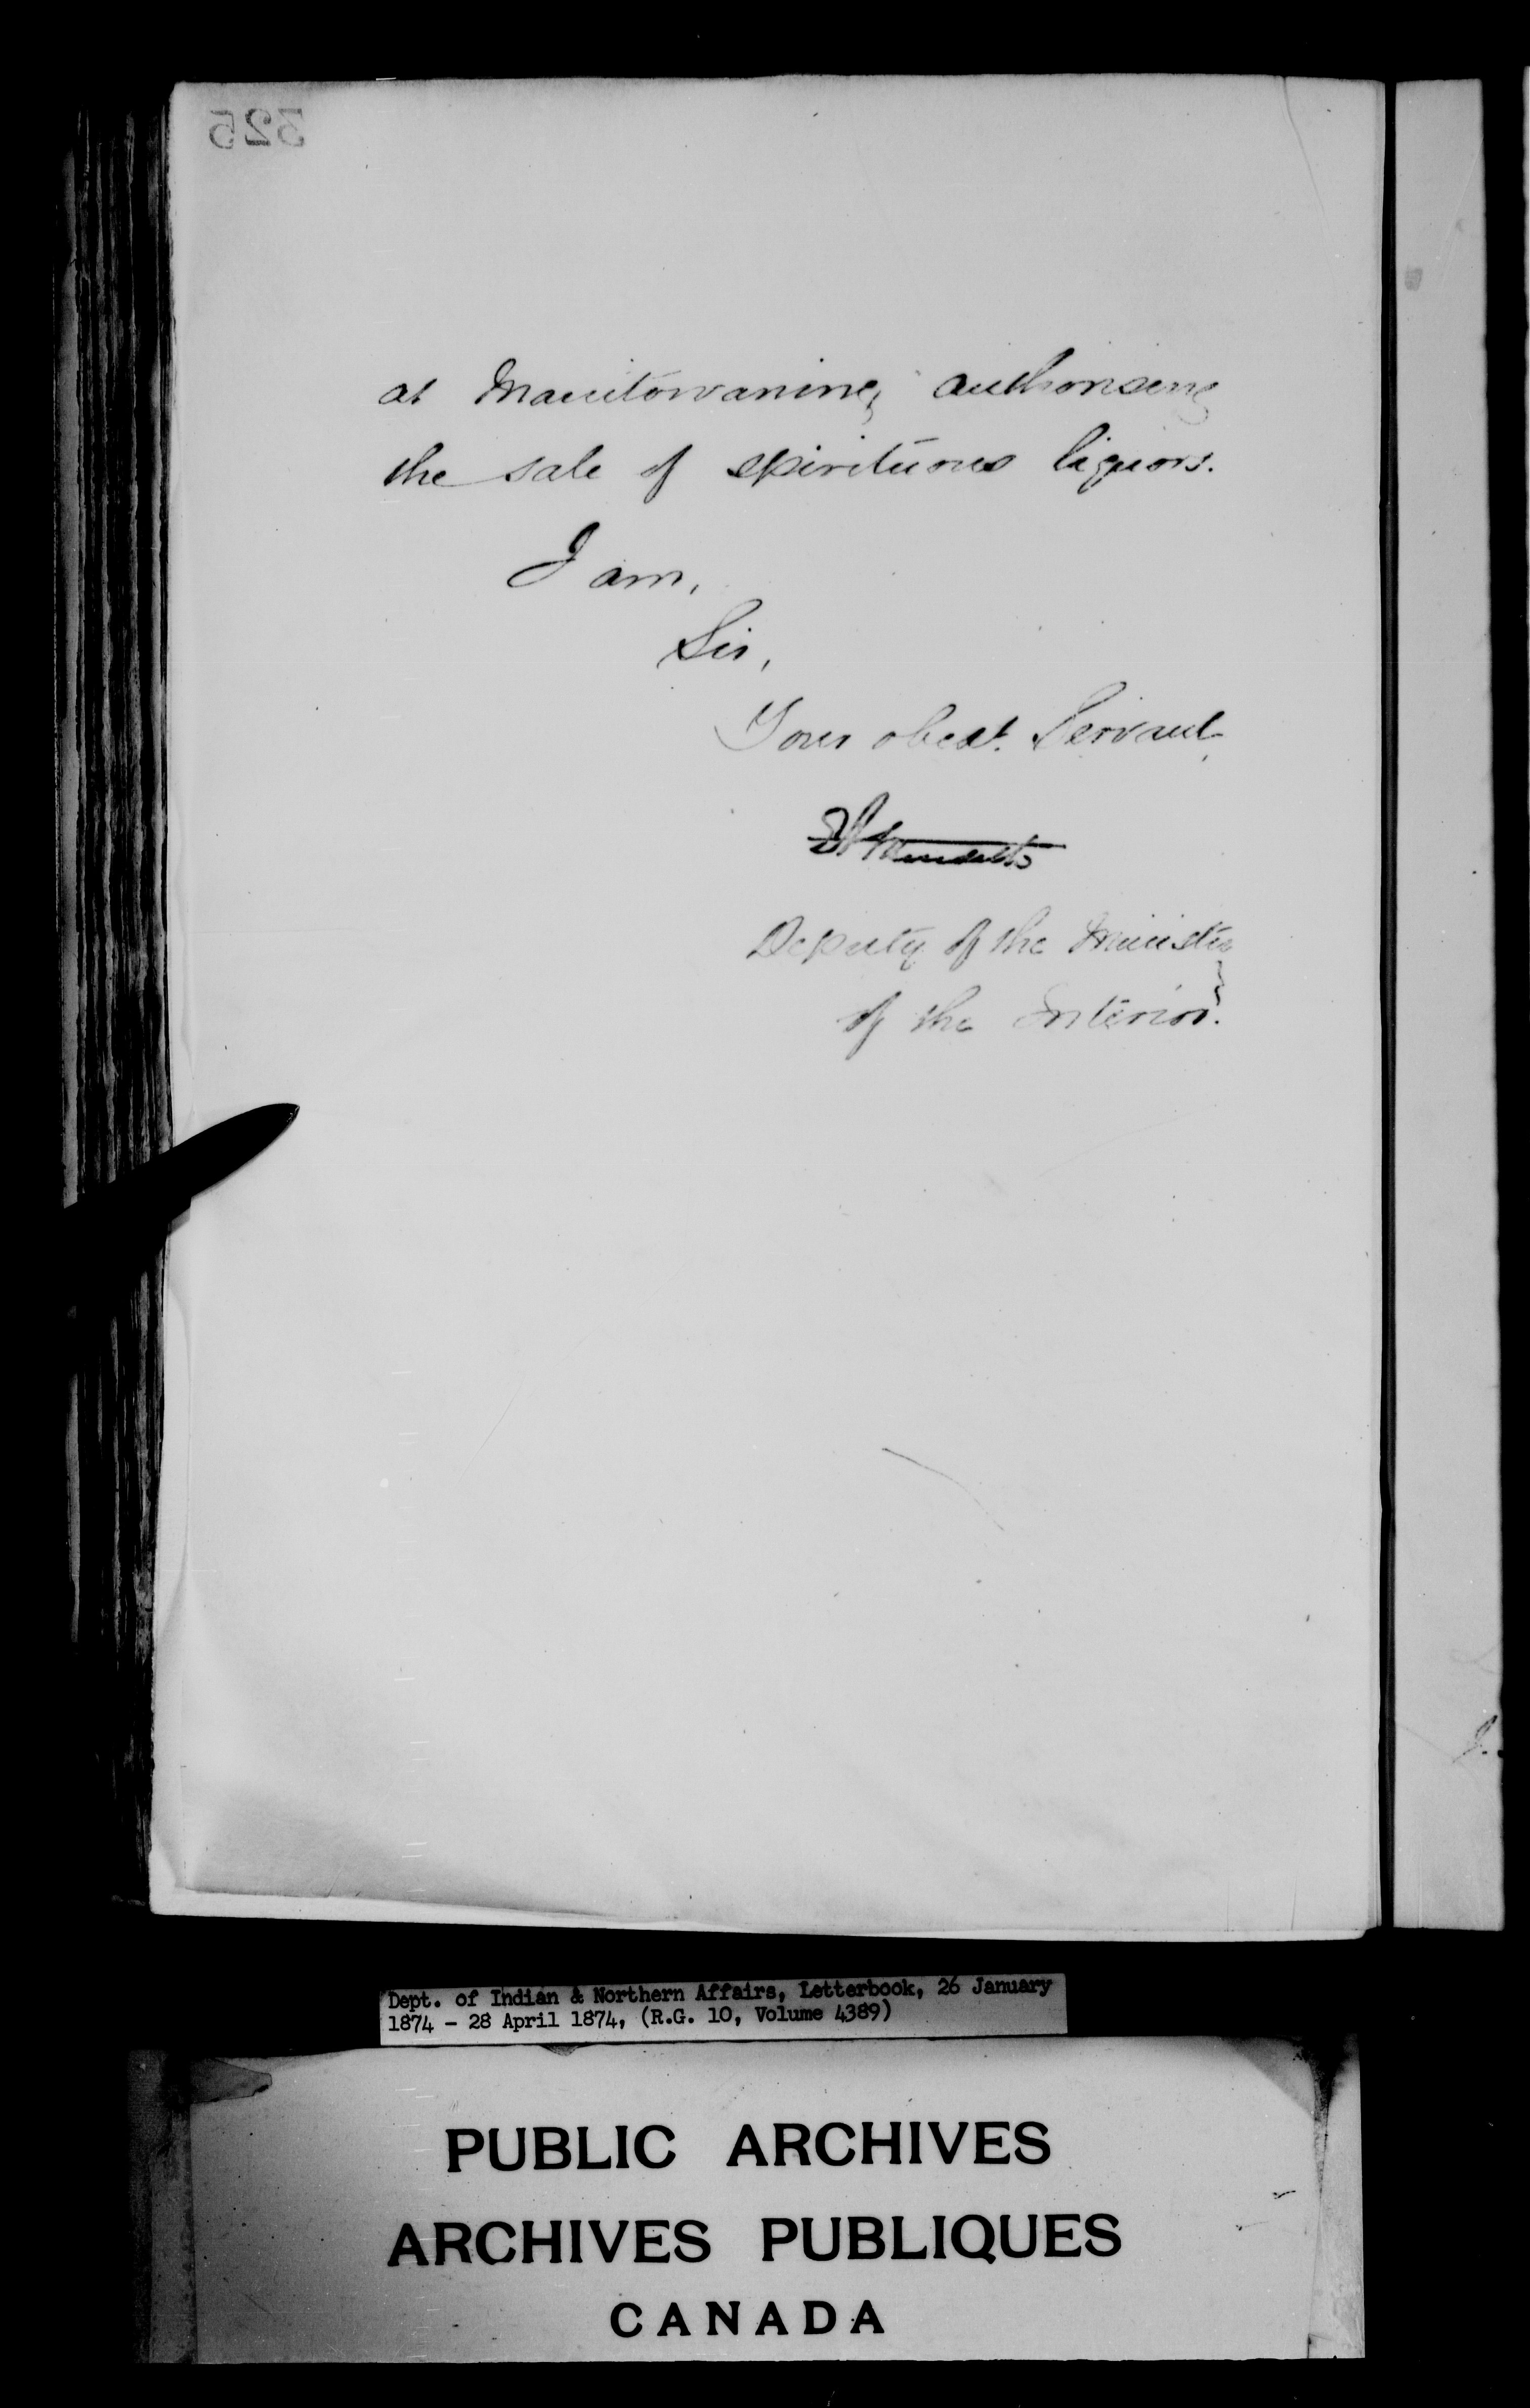 325
at Manitowaning authorising
the sale of spirituous liquors.
I am,
Sir,
Your obedt. Servant,
Deputy of the Minister
of the Interior.
Dept. of Indian & Northern Affairs, Letterbook, 26 January
1874 - 28 April 1874, (R.G. 10, Volume 4389)
PUBLIC ARCHIVES
ARCHIVES PUBLIQUES
CANADA